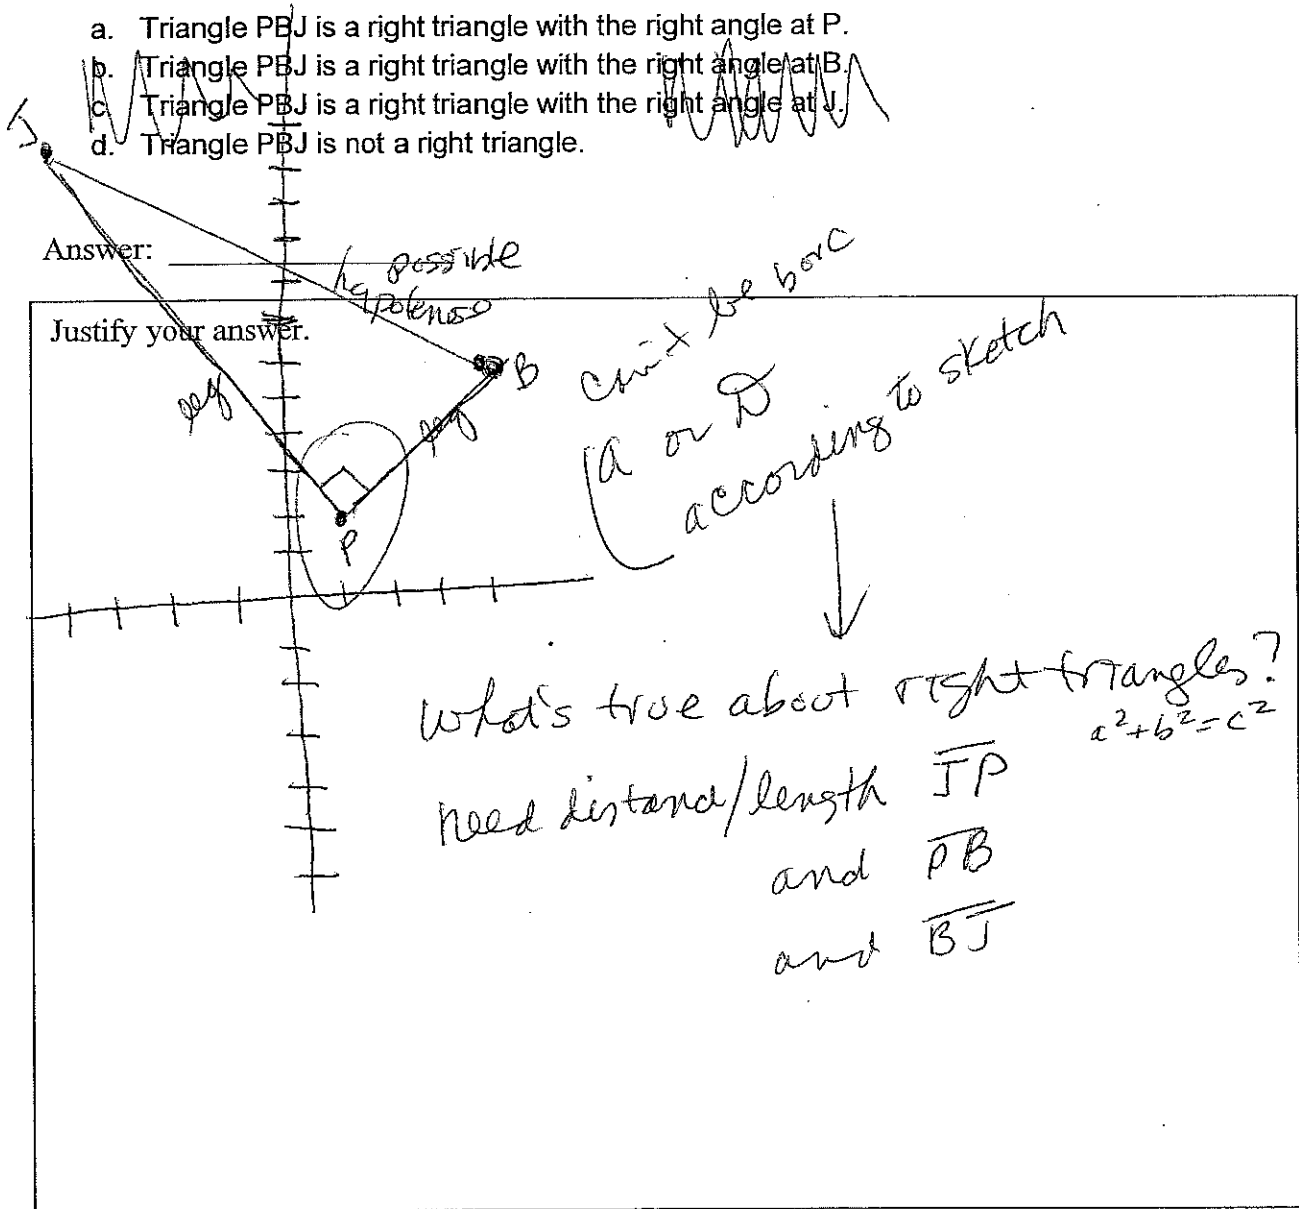 a. Triangle PBJ is a right triangle with the right angle at P.
b. Triangle PBJ is a right triangle with the right angle at B.
c. Triangle PBJ is a right triangle with the right angle at J.
d. Triangle PBJ is not a right triangle.
J
Answer:
possible
Justify your answer.
B
leg
leg
P
can't be b or c
a or D
according to sketch
what's true about right triangles?
a²+b²=c²
need distand/length JP
and PB
and BJ